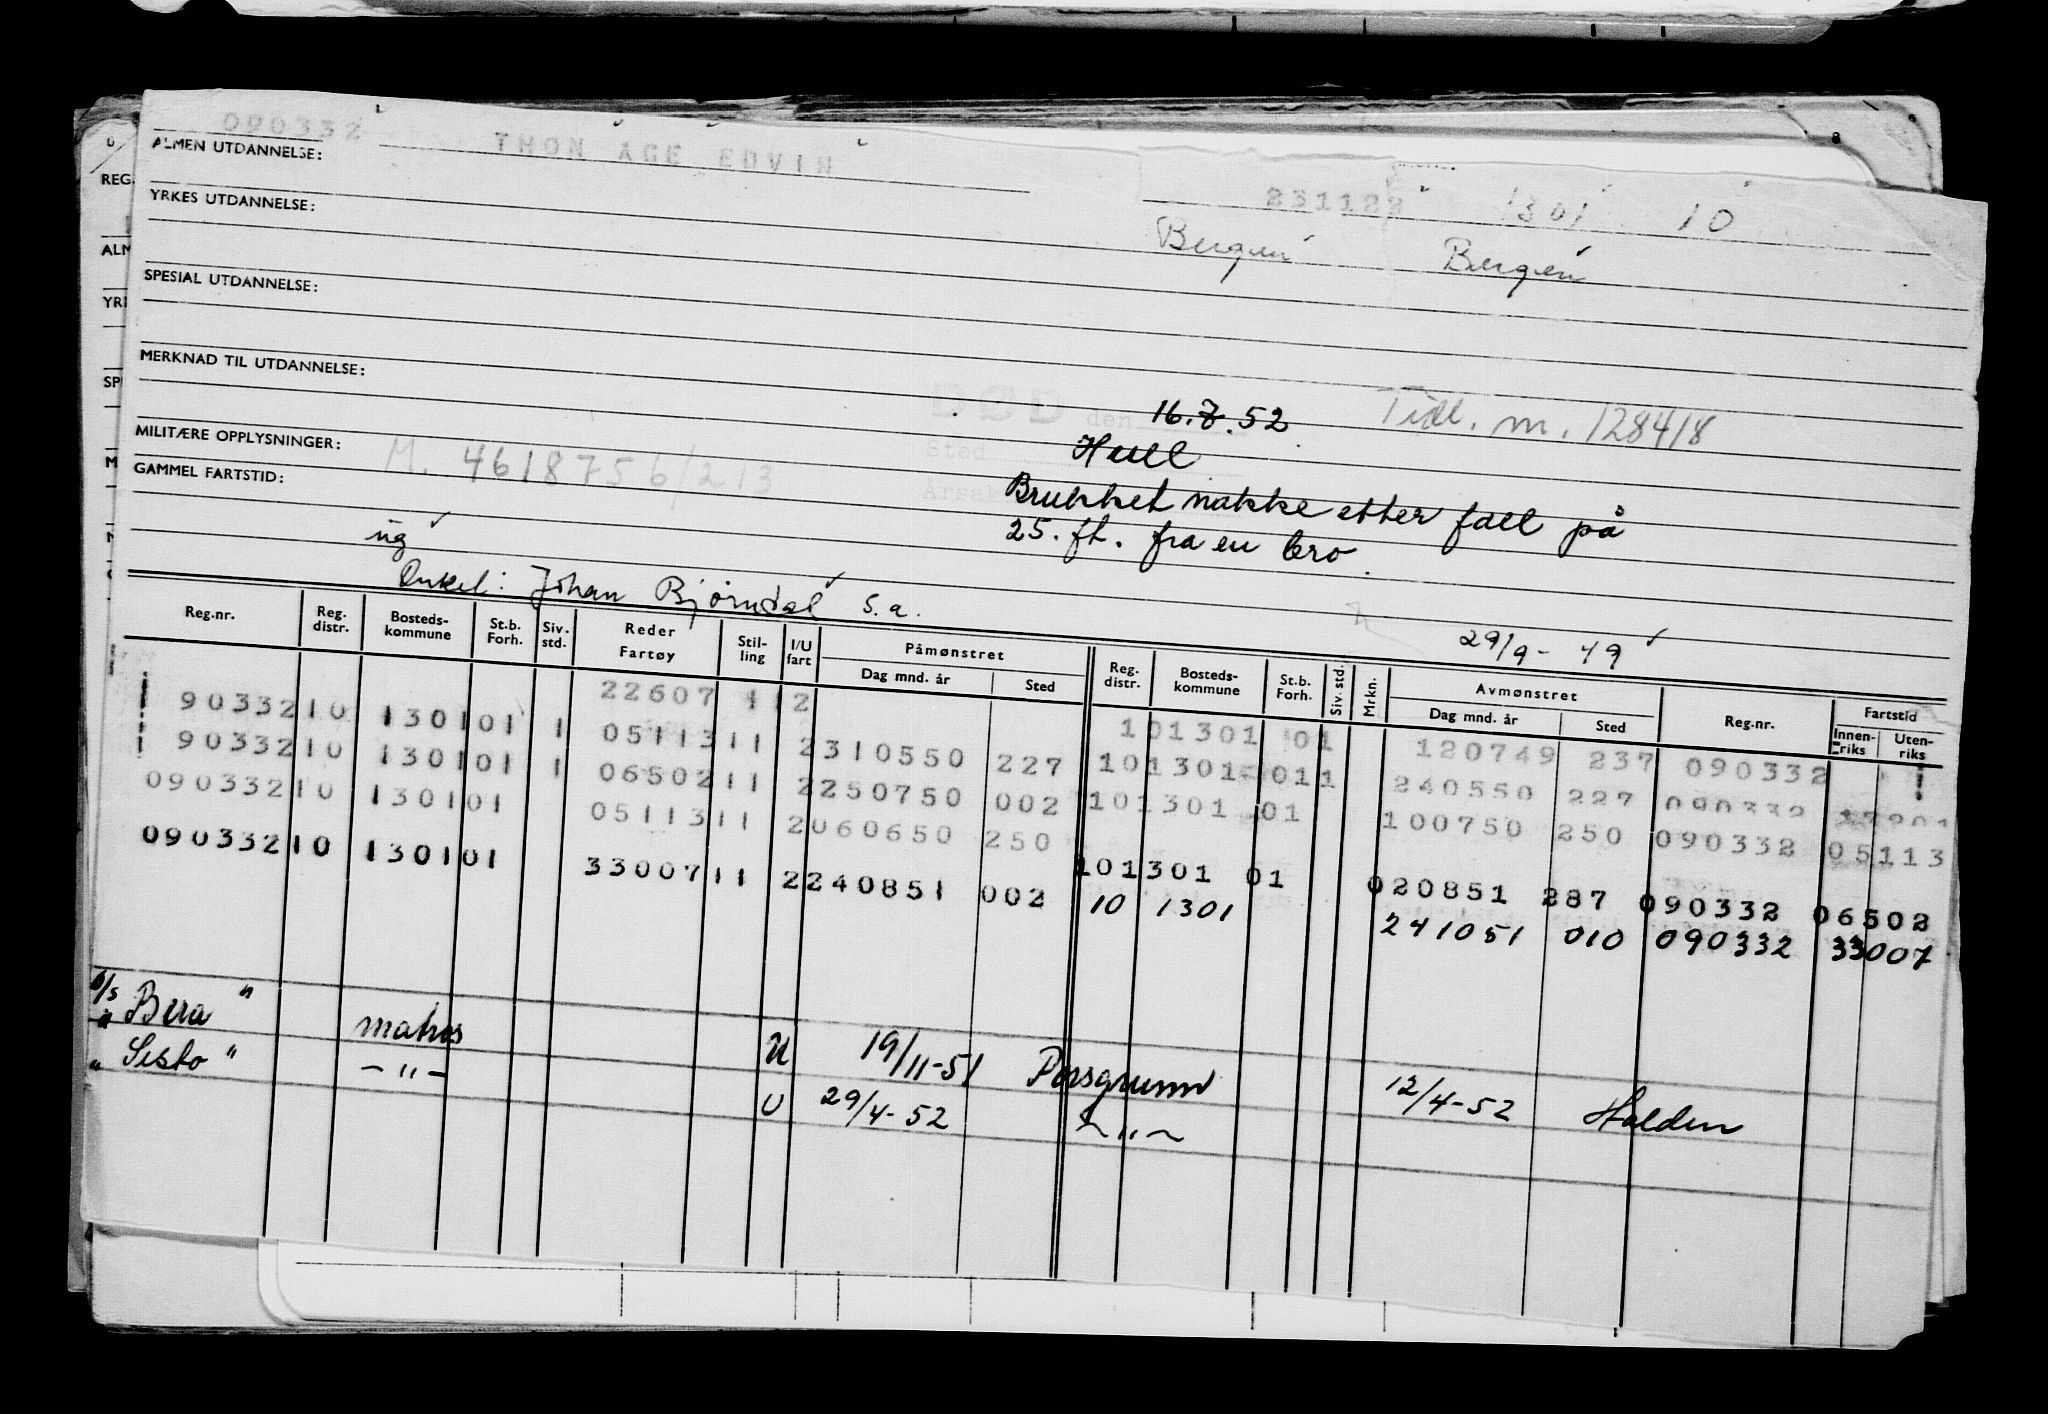 090332
THON ÅGE EDVIN
ALMEN UTDANNELSE:
231122 1301 10
YRKES UTDANNELSE:
Bergen Bergen
SPESIAL UTDANNELSE:
MERKNAD TIL UTDANNELSE:
DØD den 16.7.52 Tidl. m. 128418
MILITÆRE OPPLYSNINGER: M. 4618756/213
Sted Hull
GAMMEL FARTSTID:
Årsak Brukket nakke etter fall på
25. ft. fra en bro.
ug
Onkel: Johan Bjørndal s.a.
29/9-49
Reg.nr. Reg. distr. Bosteds-kommune St.b. Forh. Siv. std. Reder Fartøy Stil-ling I/U fart Påmønstret Dag mnd. år Sted Reg. distr. Bosteds-kommune St.b. Forh. Siv. std. Mrkn. Avmønstret Dag mnd. år Sted Reg.nr. Fartstid Innen-riks Uten-riks
22607 112 101301 01 120749 237 090332
90332 10 1301 01 1 05113 11 2 310550 227 101301 01 1 240550 227 090332
90332 10 1301 01 1 06502 11 2 250750 002 101301 01 100750 250 090332 05113
090332 10 1301 01 05113 11 2 060650 250 101301 01 020851 287 090332 06502
090332 10 1301 01 33007 11 2 240851 002 10 1301 241051 010 090332 33007
D/S "Bera" matros U 19/11-51 Porsgrunn 12/4-52 Halden
" Sisto " -"- U 29/4-52 -"-